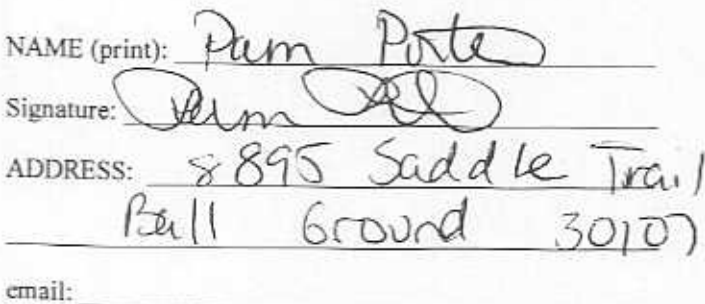 NAME (print): Pam Porter
Signature: Pam
ADDRESS: 8895 Saddle Trail
Ball Ground 30107
email: